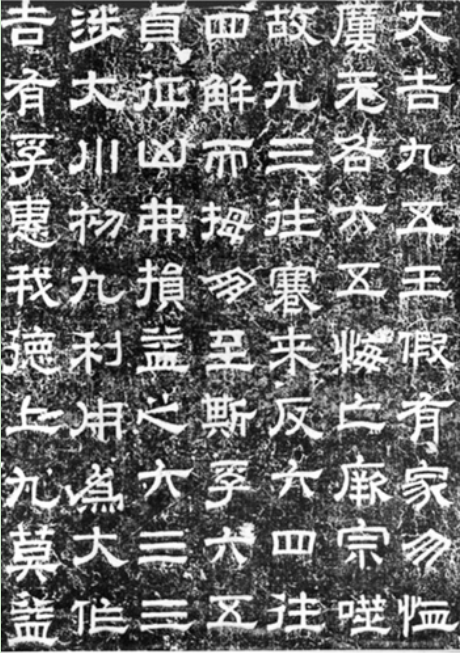 大吉九五王假有家勿恤
厲无咎六五悔亡厥宗噬
故九三往蹇来反六四往
四解而拇勿至斯孚六五
貞征凶弗損益之六三三
涉大川初九利用為大作
吉有孚惠我德上九莫益